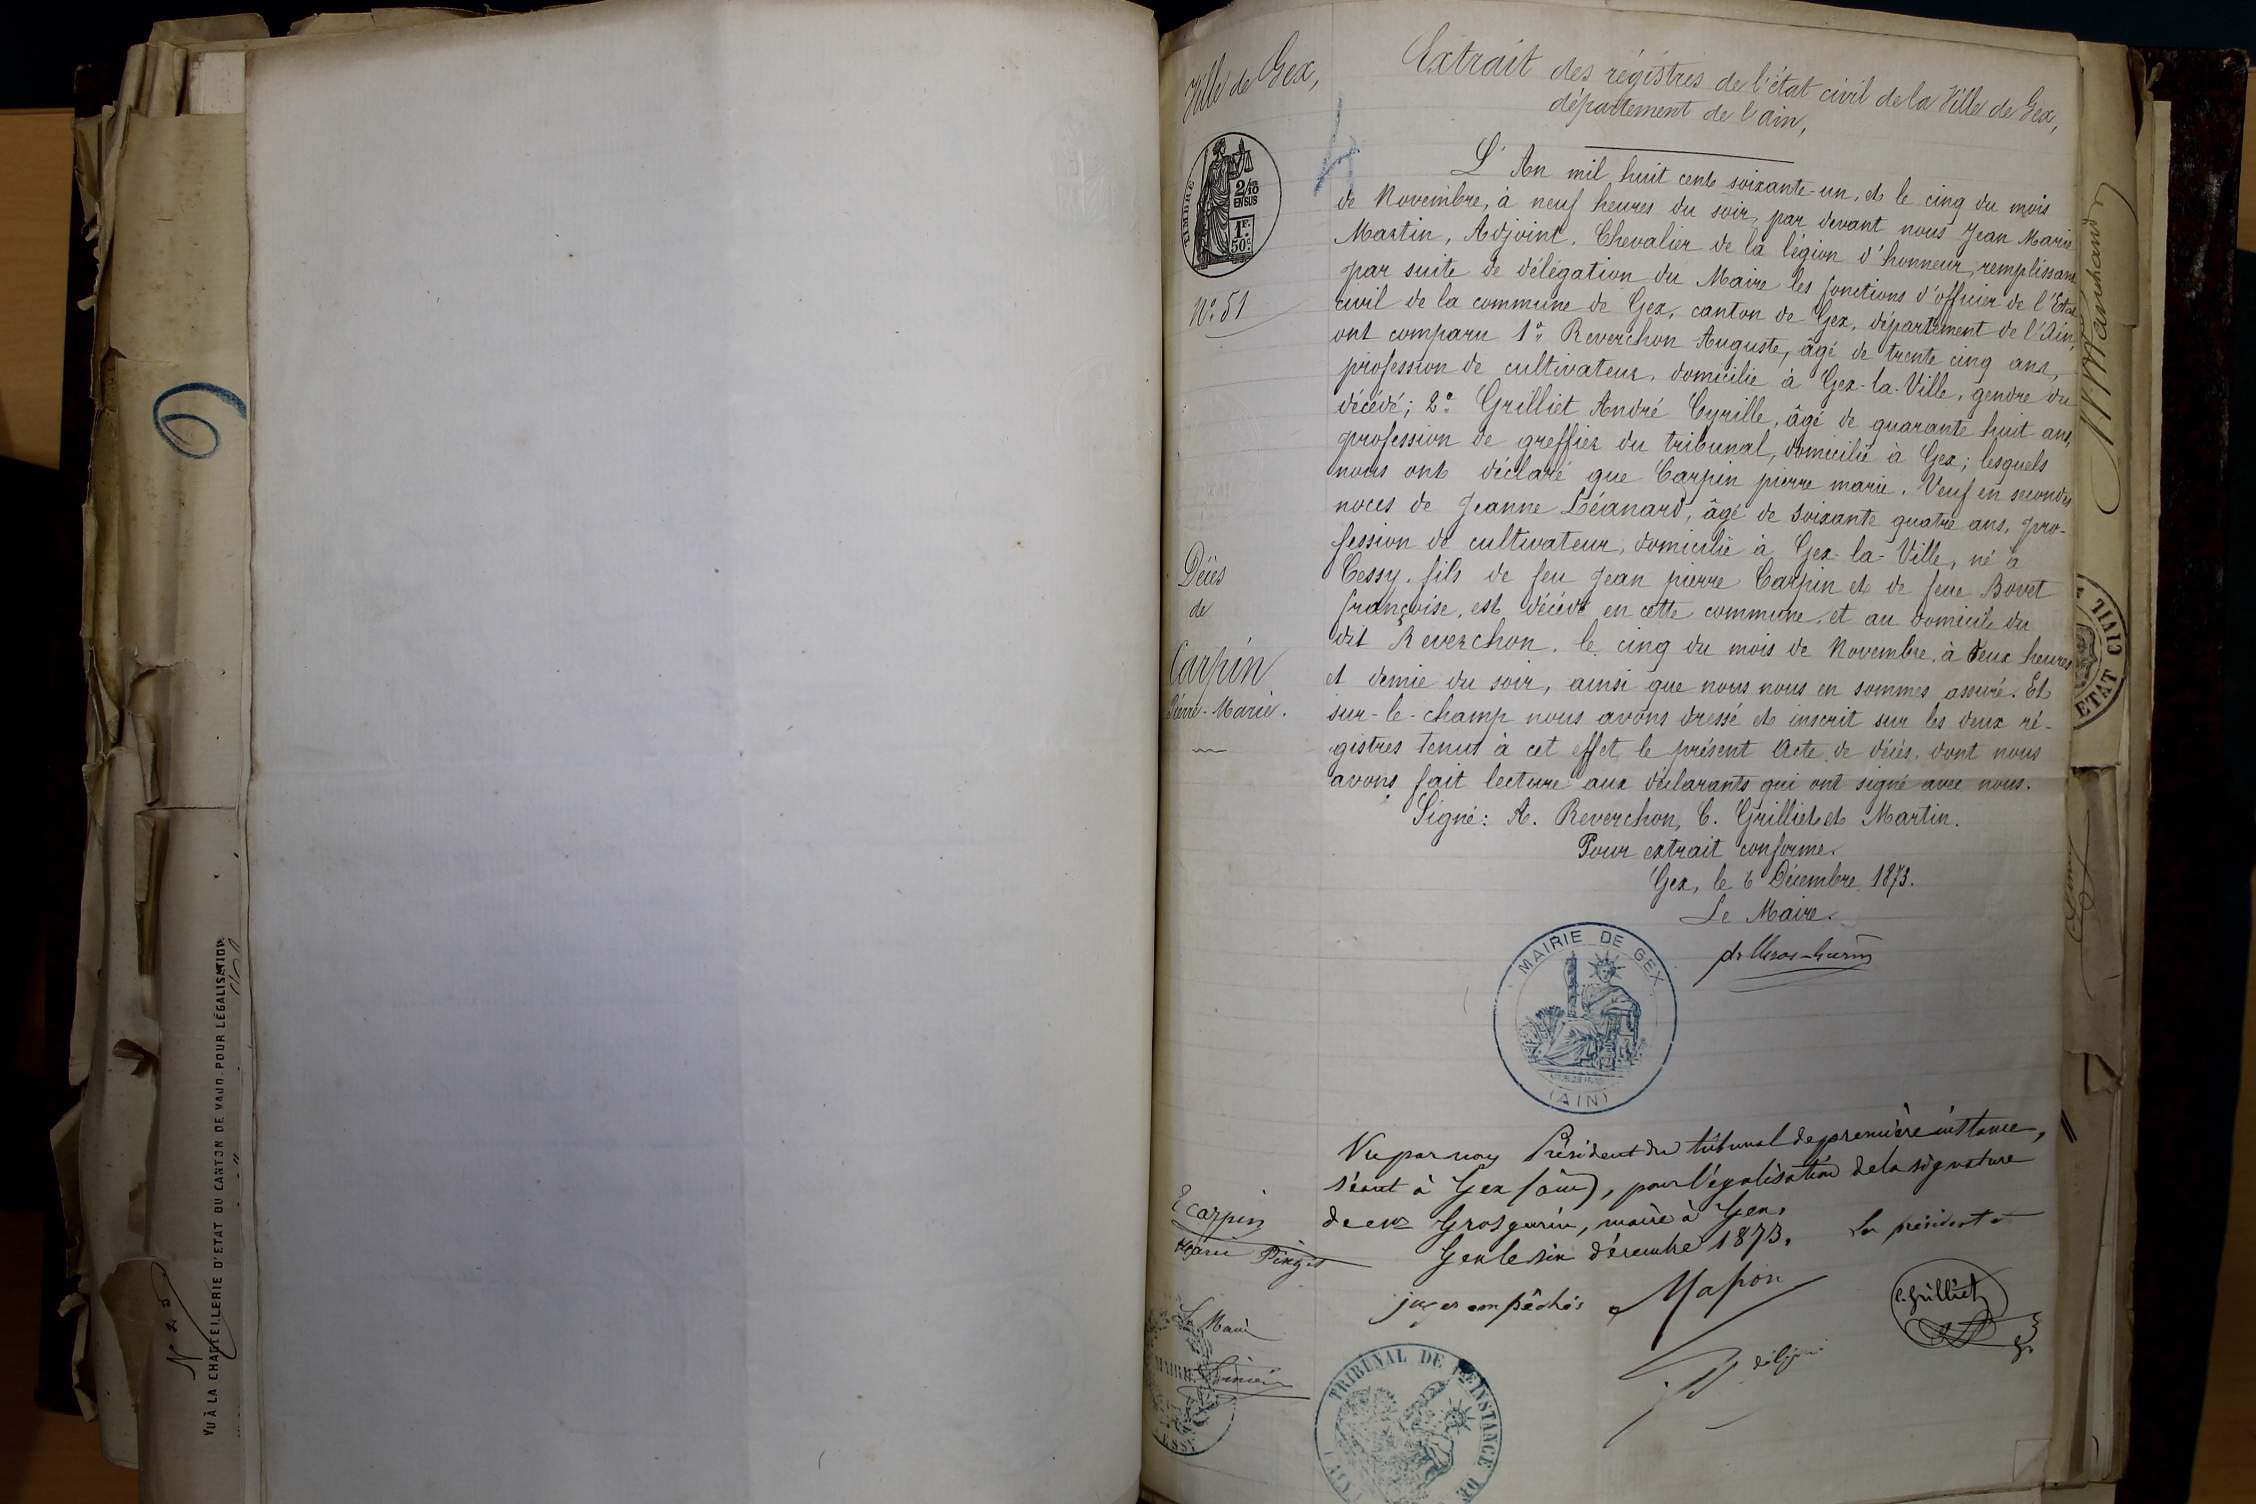 Ville de Gex,
TIMBRE
2/10
EN SUS
1F.
50c.
N° 51
Décès
de
Carpin
Pierre-Marie.
Extrait des régistres de l'état civil de la Ville de Gex,
département de l'ain,
L'An mil huit cent soixante-un, et le cinq du mois
de Novembre, à neuf heures du soir, par devant nous Jean Marie
Martin, Adjoint, Chevalier de la légion d'honneur, remplissant
par suite de délégation du Maire les fonctions d'officier de l'Etat
civil de la commune de Gex, canton de Gex, département de l'Ain,
ont comparu 1° Reverchon Auguste, âgé de trente cinq ans,
profession de cultivateur, domicilié à Gex-la-Ville, gendre du
décédé; 2° Grilliet André Cyrille, âgé de quarante huit ans,
profession de greffier du tribunal, domicilié à Gex; lesquels
nous ont déclaré que Carpin pierre marie, Veuf en secondes
noces de Jeanne Léanard, âgé de soixante quatre ans, pro-
fession de cultivateur, domicilié à Gex-la-Ville, né à
Cessy, fils de feu Jean pierre Carpin et de feue Bovet
françoise, est décédé en cette commune, et au domicile du
dit Reverchon, le cinq du mois de Novembre, à deux heures
et demie du soir, ainsi que nous nous en sommes assuré. Et
sur-le-champ nous avons dressé et inscrit sur les deux ré-
gistres tenus à cet effet, le présent Acte de décès, dont nous
avons fait lecture aux déclarants qui ont signé avec nous.
Signé: A. Reverchon, C. Grilliet et Martin.
Pour extrait conforme.
Gex, le 6 Décembre 1873.
Le Maire.
MAIRIE DE GEX
(AIN)
Vu par nous Président du tribunal de première instance,
séant à Gex (ain), pour légalisation de la signature
de Mr Grosgurin, maire à Gex.
Gex le six décembre 1873.
Le président
juges empêchés
C. Grilliet
E Carpin
Marie
Le Maire
MAIRIE
TRIBUNAL DE 1ERE INSTANCE DE
Marchand
ETAT CIVIL
N° 25
VU À LA CHANCELLERIE D'ETAT DU CANTON DE VAUD POUR LÉGALISATION